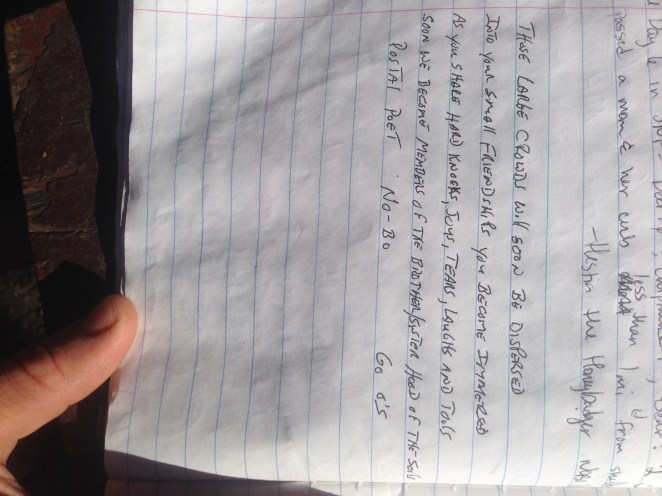 Day 6 in
passed a mom & her cub less than 1 mi from
- Hustn the Honeybadger
THOSE LARGE CROWDS WILL SOON BE DISPERSED
INTO YOUR SMALL FRIENDSHIPS YOU BECOME IMMERSED
AS YOU SHARE HARD KNOCKS, JOYS, TEARS, LAUGHS AND TOOLS
SOON WE BECOME MEMBERS OF THE BROTHER/SISTER HOOD OF THE
POSTAL POET NO-BO GO O'S